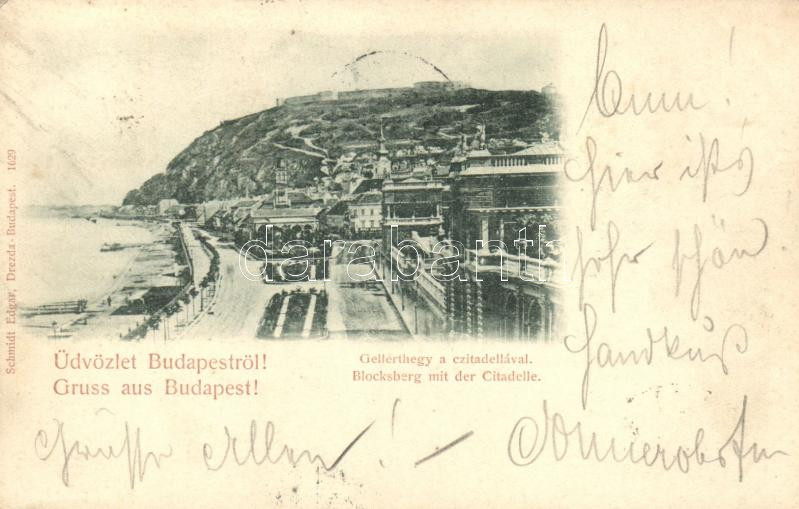 Schmidt Edgar, Drezda-Budapest. 1629
Üdvözlet Budapestről!
Gruss aus Budapest!
Gellérthegy a czitadellával.
Blocksberg mit der Citadelle.
darabanth
!
Hier ists
sehr schön.
Handkuß
Grüsse Allen! —